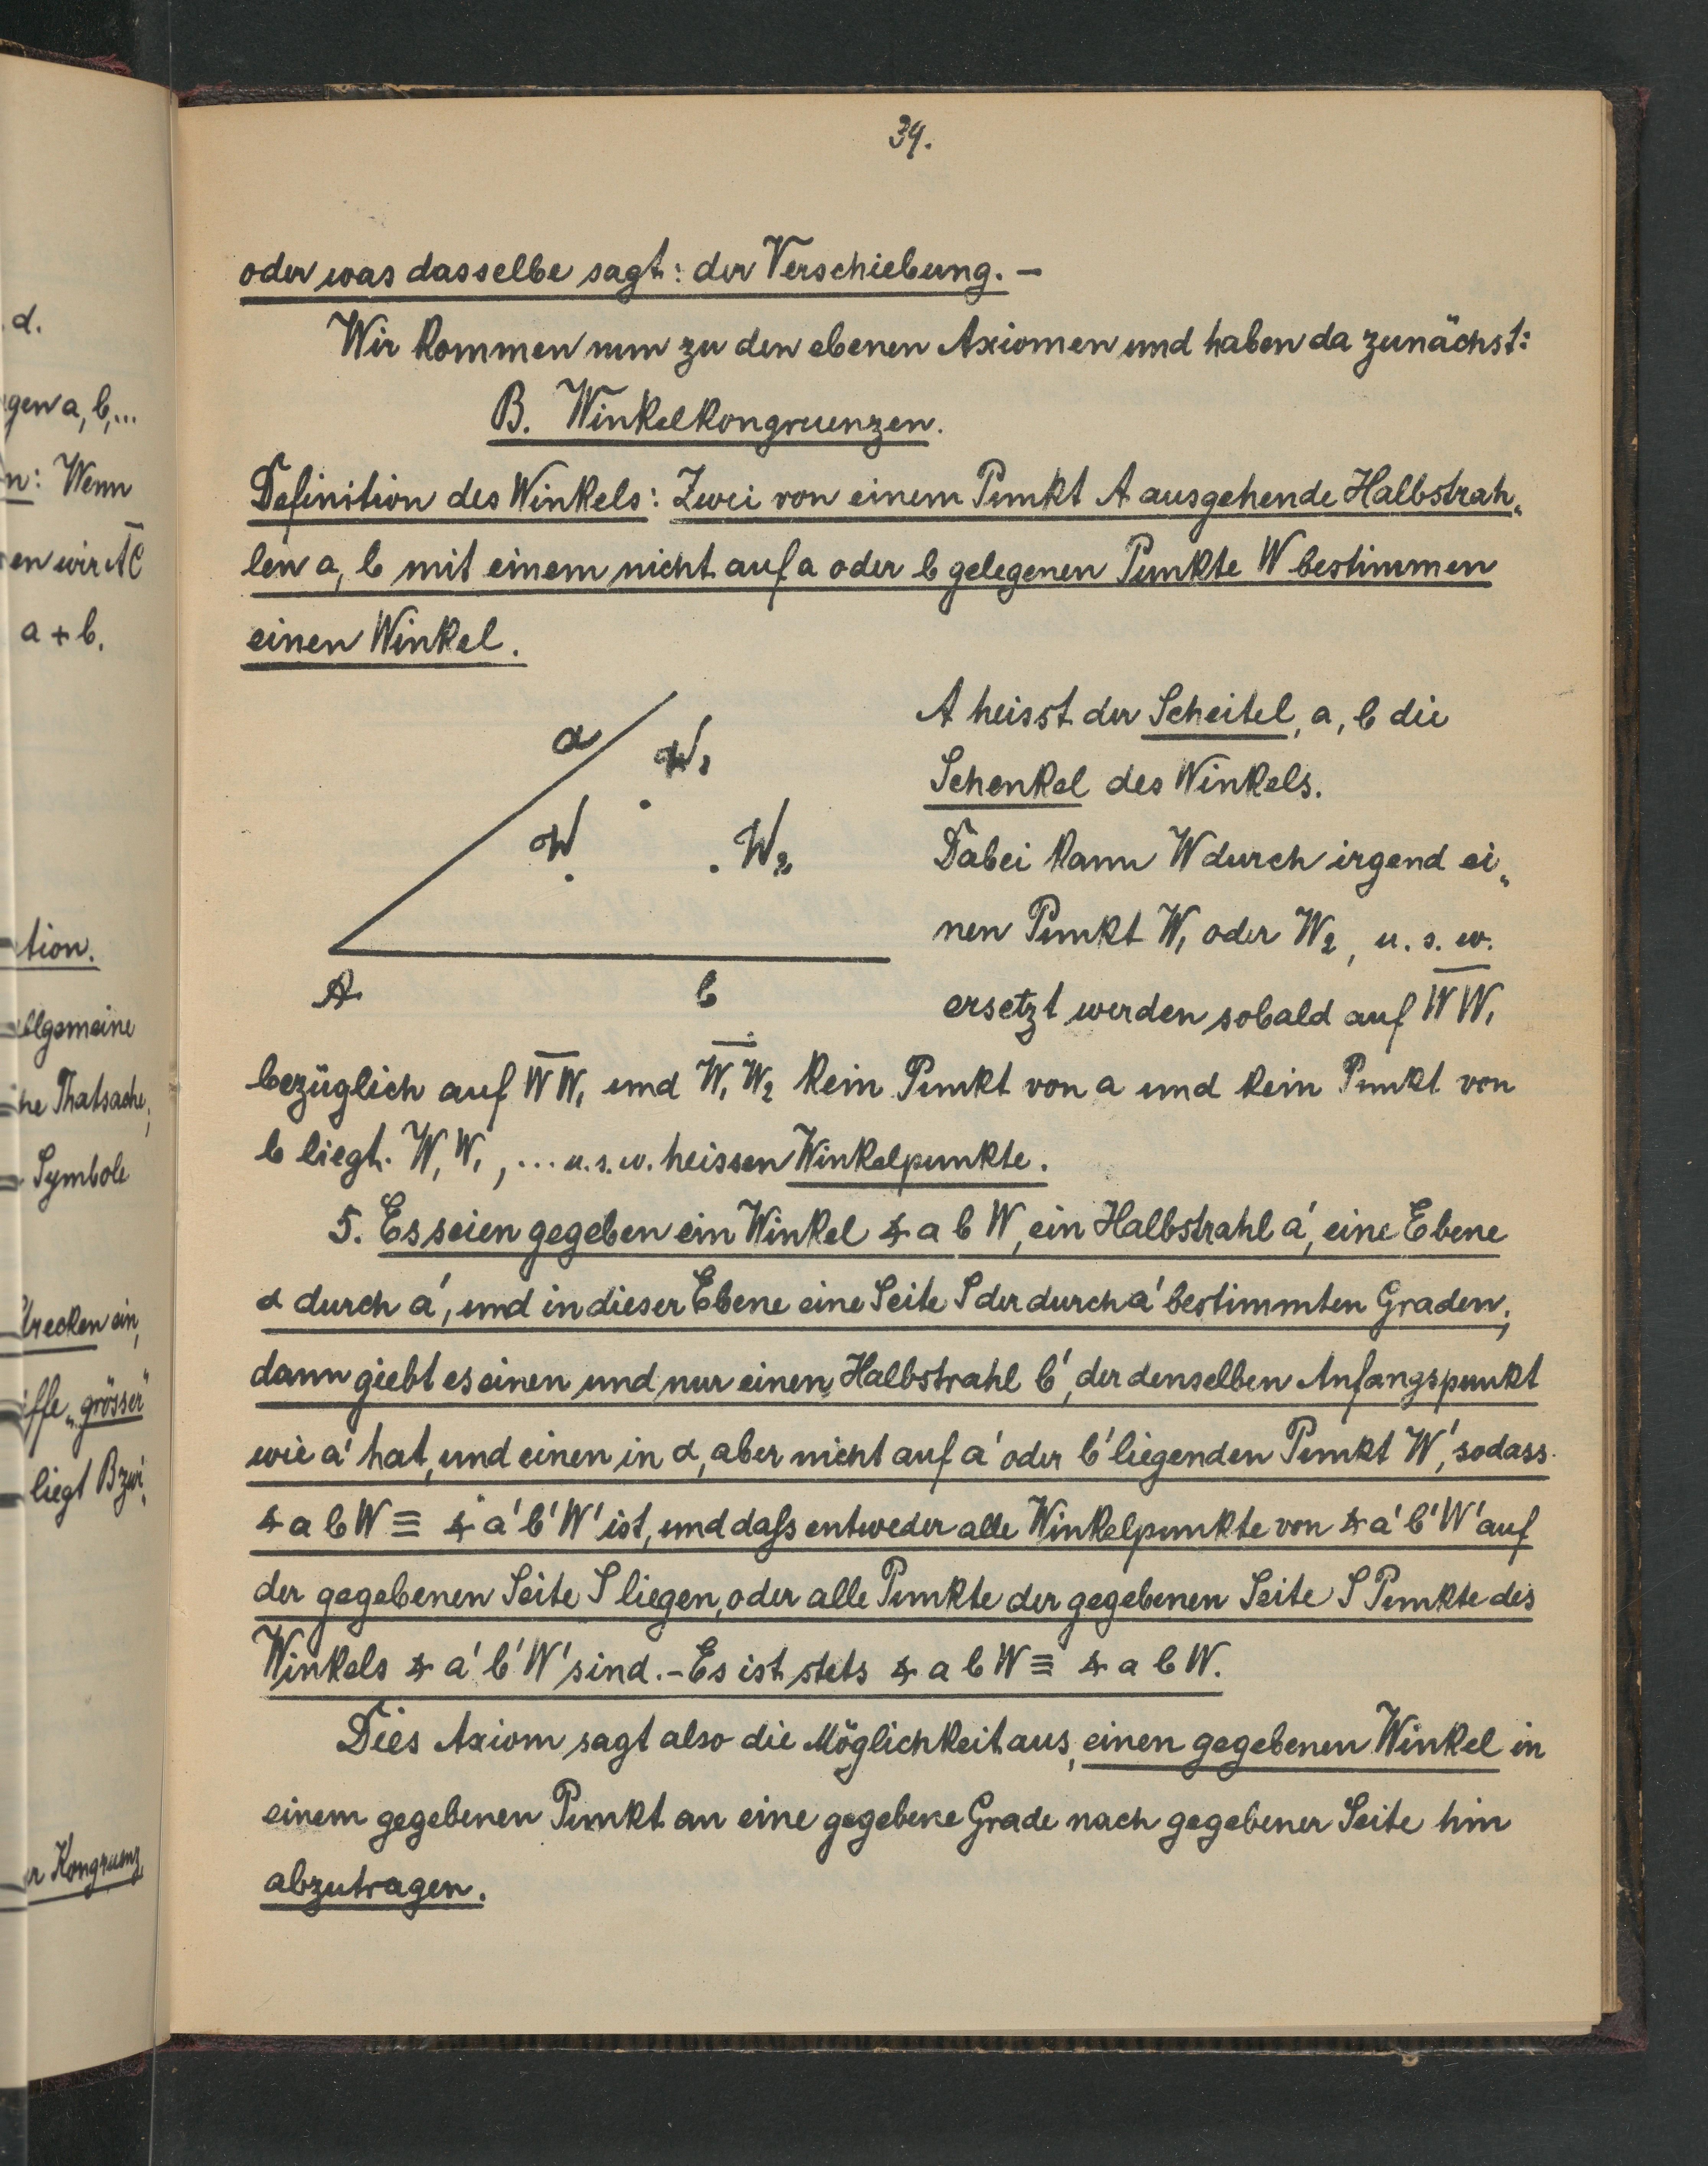 d.
gen a, b, ...
n: Wenn
en wir AC
a + b.
tion.
llgemeine
ne Thatsache,
Symbole
trecken ein,
iffe „grösser"
liegt B zwi„
er Kongruenz
39.
oder was dasselbe sagt: der Verschiebung. –
Wir kommen nun zu den ebenen Axiomen und haben da zunächst:
B. Winkelkongruenzen.
Definition des Winkels: Zwei von einem Punkt A ausgehende Halbstrah„
len a, b mit einem nicht auf a oder b gelegenen Punkte W bestimmen
einen Winkel.
a
W₁
W
W₂
A
b
A heisst der Scheitel, a, b die
Schenkel des Winkels.
Dabei kann W durch irgend ei„
nen Punkt W₁ oder W₂, u. s. w.
ersetzt werden sobald auf W̅W̅₁
bezüglich auf W̅W̅₁ und W̅₁W̅₂ kein Punkt von a und kein Punkt von
b liegt. W, W₁, ... u. s. w. heissen Winkelpunkte.
5. Es seien gegeben ein Winkel ∢ a b W, ein Halbstrahl a', eine Ebene
α durch a', und in dieser Ebene eine Seite S der durch a' bestimmten Graden;
dann giebt es einen und nur einen Halbstrahl b', der denselben Anfangspunkt
wie a' hat, und einen in α, aber nicht auf a' oder b' liegenden Punkt W', sodass
∢ a b W ≡ ∢ a' b' W' ist, und daſs entweder alle Winkelpunkte von ∢ a' b' W' auf
der gegebenen Seite S liegen, oder alle Punkte der gegebenen Seite S Punkte des
Winkels ∢ a' b' W' sind. – Es ist stets ∢ a b W ≡ ∢ a b W.
Dies Axiom sagt also die Möglichkeit aus, einen gegebenen Winkel in
einem gegebenen Punkt an eine gegebene Grade nach gegebener Seite hin
abzutragen.